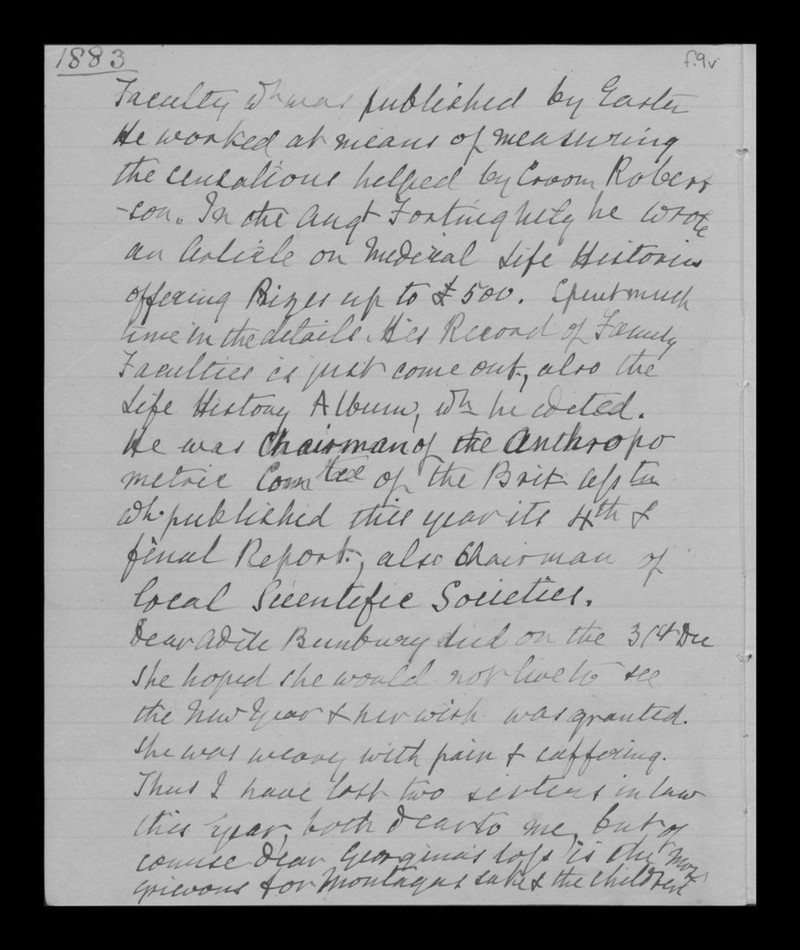 1883
f.9v
Faculty wh was published by Easter
He worked at means of measuring
the sensations helped by Croom Robert
-son. In the Augt Fortnightly he wrote
an Article on Medical Life Histories
offering Prizes up to £500. Spent much
time in the details. His Record of Family
Faculties is just come out, also the
Life History Album, wh he edited.
He was Chairman of the Anthropo
metric Comtee of the Brit Asstn
wh. published this year its 4th &
final Report, also Chairman of
local Scientific Societies.
Dear Adèle Bunbury died on the 31st Dec
She hoped she would not live to see
the New Year & her wish was granted.
She was weary with pain & suffering.
Thus I have lost two sisters in law
this Year, both dear to me, but of
course dear Georgina's loss is the most
grievous for Montagus sake & the children